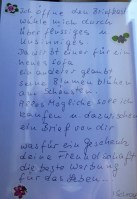 Ich öffne den Briefkasten
wühle mich durch
Überflüssiges und
Unsinniges
Da wirbt einer für ein
neues Sofa
ein anderer glaubt
eine Blume blühe
am
Alles Mögliche soll ich
kaufen u dazwischen
ein Brief von dir

was für ein Geschenk
deine Freundschaft
die beste Werbung
für das Leben